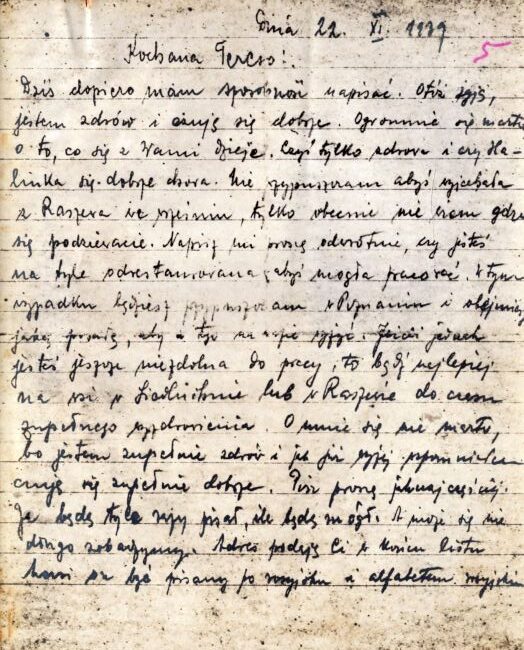 Dnia 22. XI 1939
5
Kochana Tereso!
Dziś dopiero mam sposobność napisać. Otóż żyję,
jestem zdrów i czuję się dobrze. Ogromnie się martwię
o to, co się z Wami dzieje. Czyś tylko zdrowa i czy Ha-
linka się dobrze chowa. Nie przypuszczam abyś wyjechała
z Raszewa we wrześniu, tylko obecnie nie wiem gdzie
się podziewacie. Napisz mi proszę odwrotnie, czy jesteś
na tyle odrestaurowana, abyś mogła pracować. W tym
wypadku będziesz przypuszczam w Poznaniu i obejmiesz
jakąś posadę, aby z tego na razie wyżyć. Jeżeli jednak
jesteś jeszcze niezdolna do pracy, to bądź najlepiej
na wsi w lub w Raszewie do czasu
zupełnego wyzdrowienia. O mnie się nie martw,
bo jestem zupełnie zdrów i jak już wyżej wspomniałem
czuję się zupełnie dobrze. Pisz proszę jaknajczęściej.
Ja będę tyle razy pisał, ile będę mógł. A może się nie
długo zobaczymy. Adres podaję Ci w końcu listu
musi on być pisany po rosyjsku i alfabetem